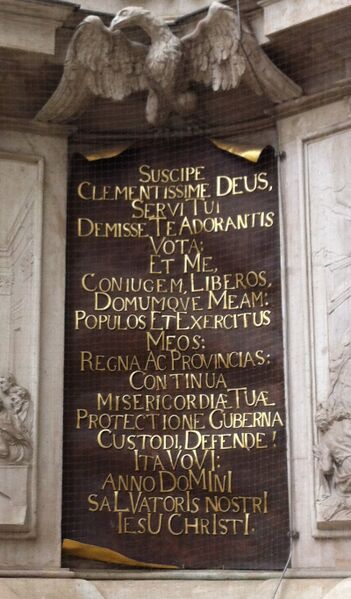 SUSCIPE
CLEMENTISSIME DEUS,
SERVI TUI
DEMISSE TE ADORANTIS
VOTA;
ET ME,
CONIUGEM, LIBEROS,
DOMUMQVE MEAM:
POPULOS ET EXERCITUS
MEOS:
REGNA AC PROVINCIAS:
CONTINUA
MISERICORDIÆ TUÆ
PROTECTIONE GUBERNA
CUSTODI, DEFENDE!
ITA VOVI:
ANNO DOMINI
SALVATORIS NOSTRI
IESU CHRISTI.